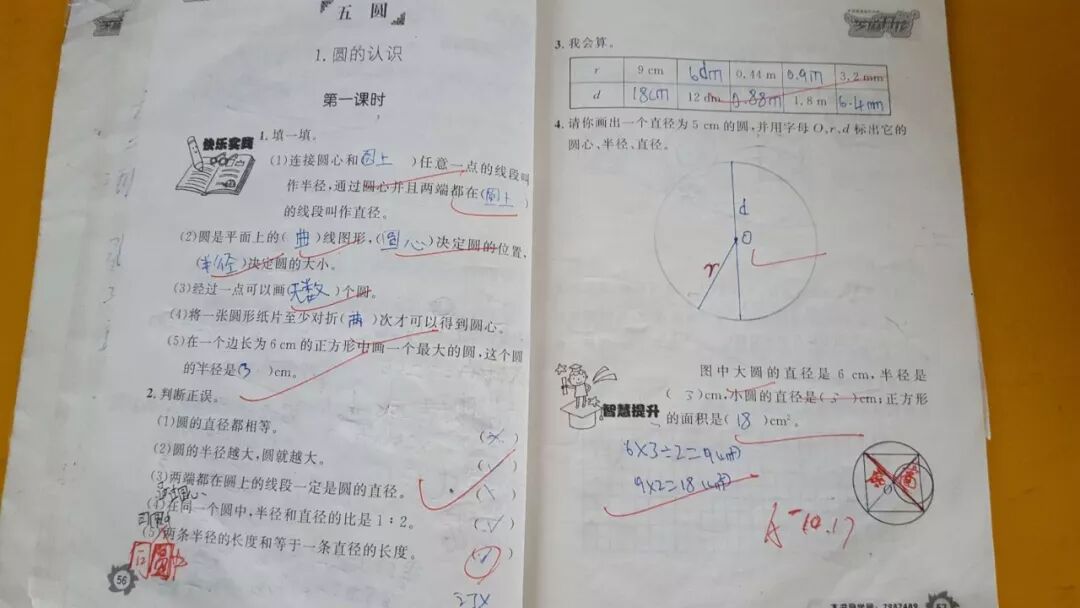 五 圆
1.圆的认识
第一课时
快乐实践
1.填一填。
(1)连接圆心和(圆上 )任意一点的线段叫
作半径,通过圆心并且两端都在(圆上 )
的线段叫作直径。
(2)圆是平面上的( 曲 )线图形,(圆心)决定圆的位置,
(半径)决定圆的大小。
(3)经过一点可以画(无数)个圆。
(4)将一张圆形纸片至少对折(两 )次才可以得到圆心。
(5)在一个边长为6 cm的正方形中画一个最大的圆,这个圆
的半径是(3 )cm。
2.判断正误。
(1)圆的直径都相等。 (×)
(2)圆的半径越大,圆就越大。 (√)
(3)两端都在圆上的线段一定是圆的直径。
(4)在同一个圆中,半径和直径的比是1:2。 (√)
(5)两条半径的长度和等于一条直径的长度。
56
3.我会算。
r 9 cm 6dm 0.44 m 0.9m 3.2 mm
d 18cm 12 dm 0.88m 1.8 m 6.4mm
4.请你画出一个直径为5 cm的圆,并用字母O、r、d标出它的
圆心、半径、直径。
d
O
r
智慧提升
图中大圆的直径是6 cm,半径是
( 3 )cm,小圆的直径是( 3 )cm;正方形
的面积是( 18 )cm²。
6×3÷2=9(cm²)
9×2=18(cm²)
O
A
10.17